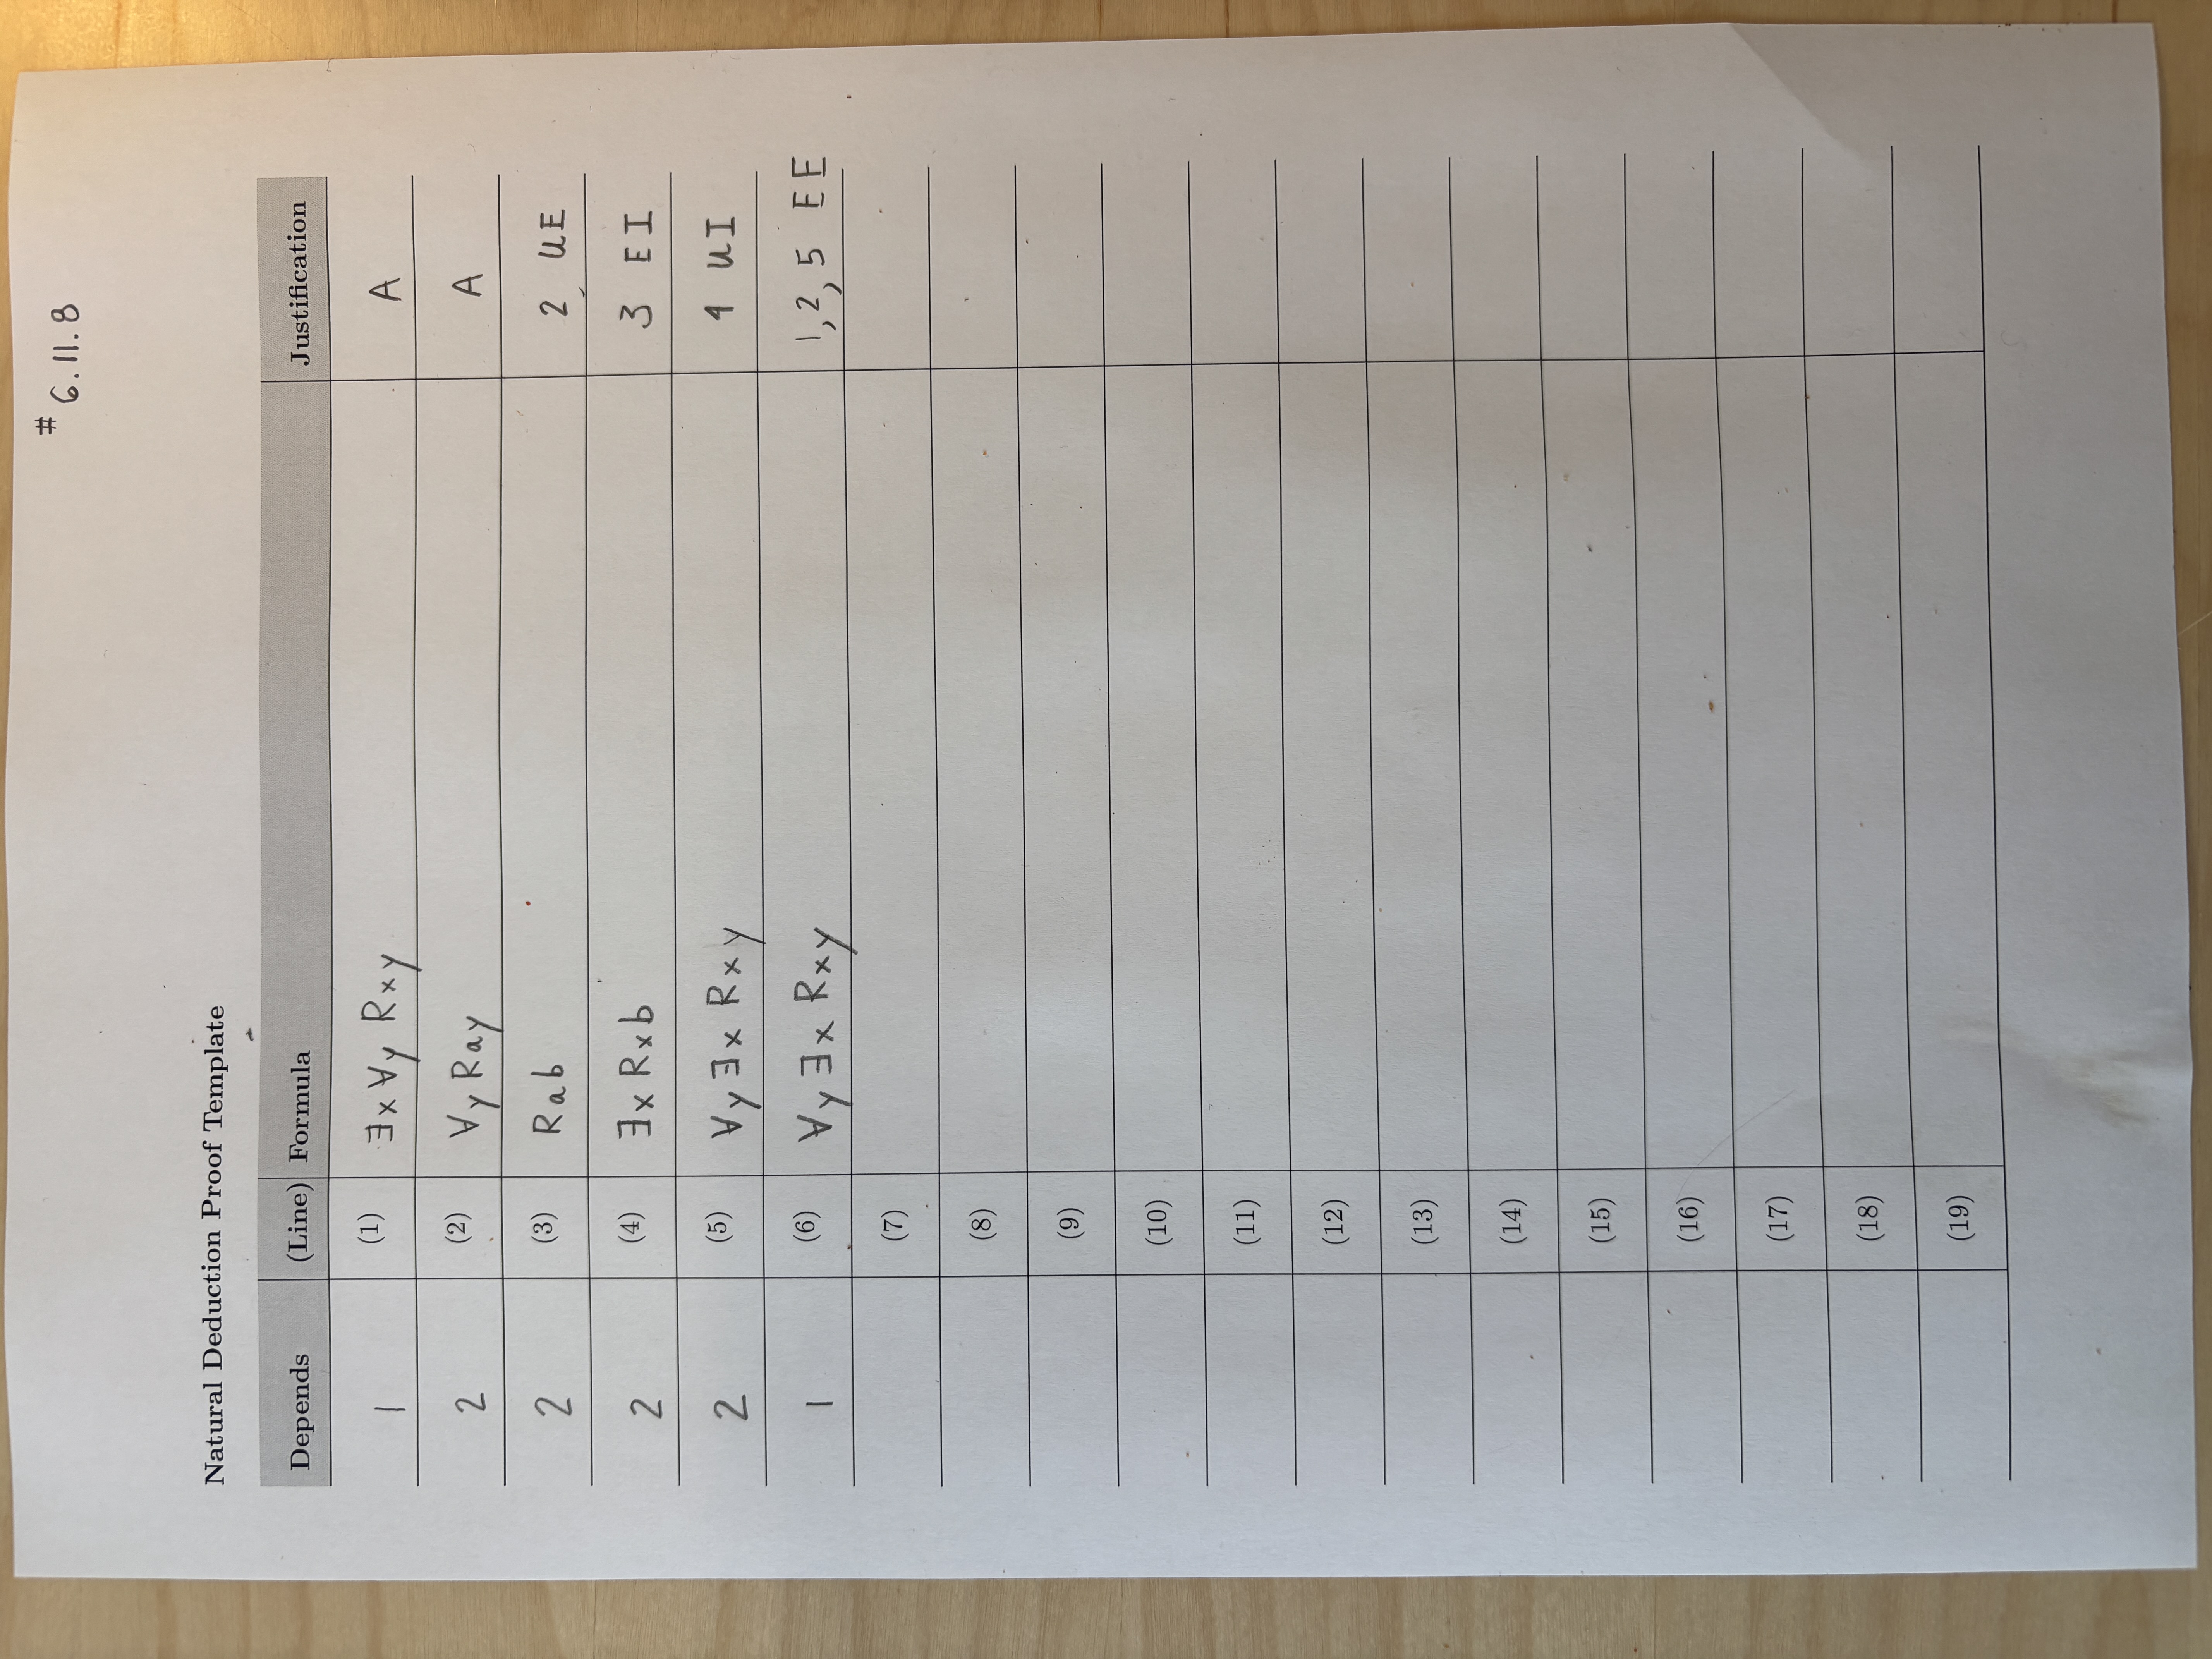 # 6.11.8
Natural Deduction Proof Template
Depends (Line) Formula Justification
1 (1) ∃x∀y Rxy A
2 (2) ∀y Ray A
2 (3) Rab 2 UE
2 (4) ∃x Rxb 3 EI
2 (5) ∀y∃x Rxy 4 UI
1 (6) ∀y∃x Rxy 1,2,5 EE
(7)
(8)
(9)
(10)
(11)
(12)
(13)
(14)
(15)
(16)
(17)
(18)
(19)